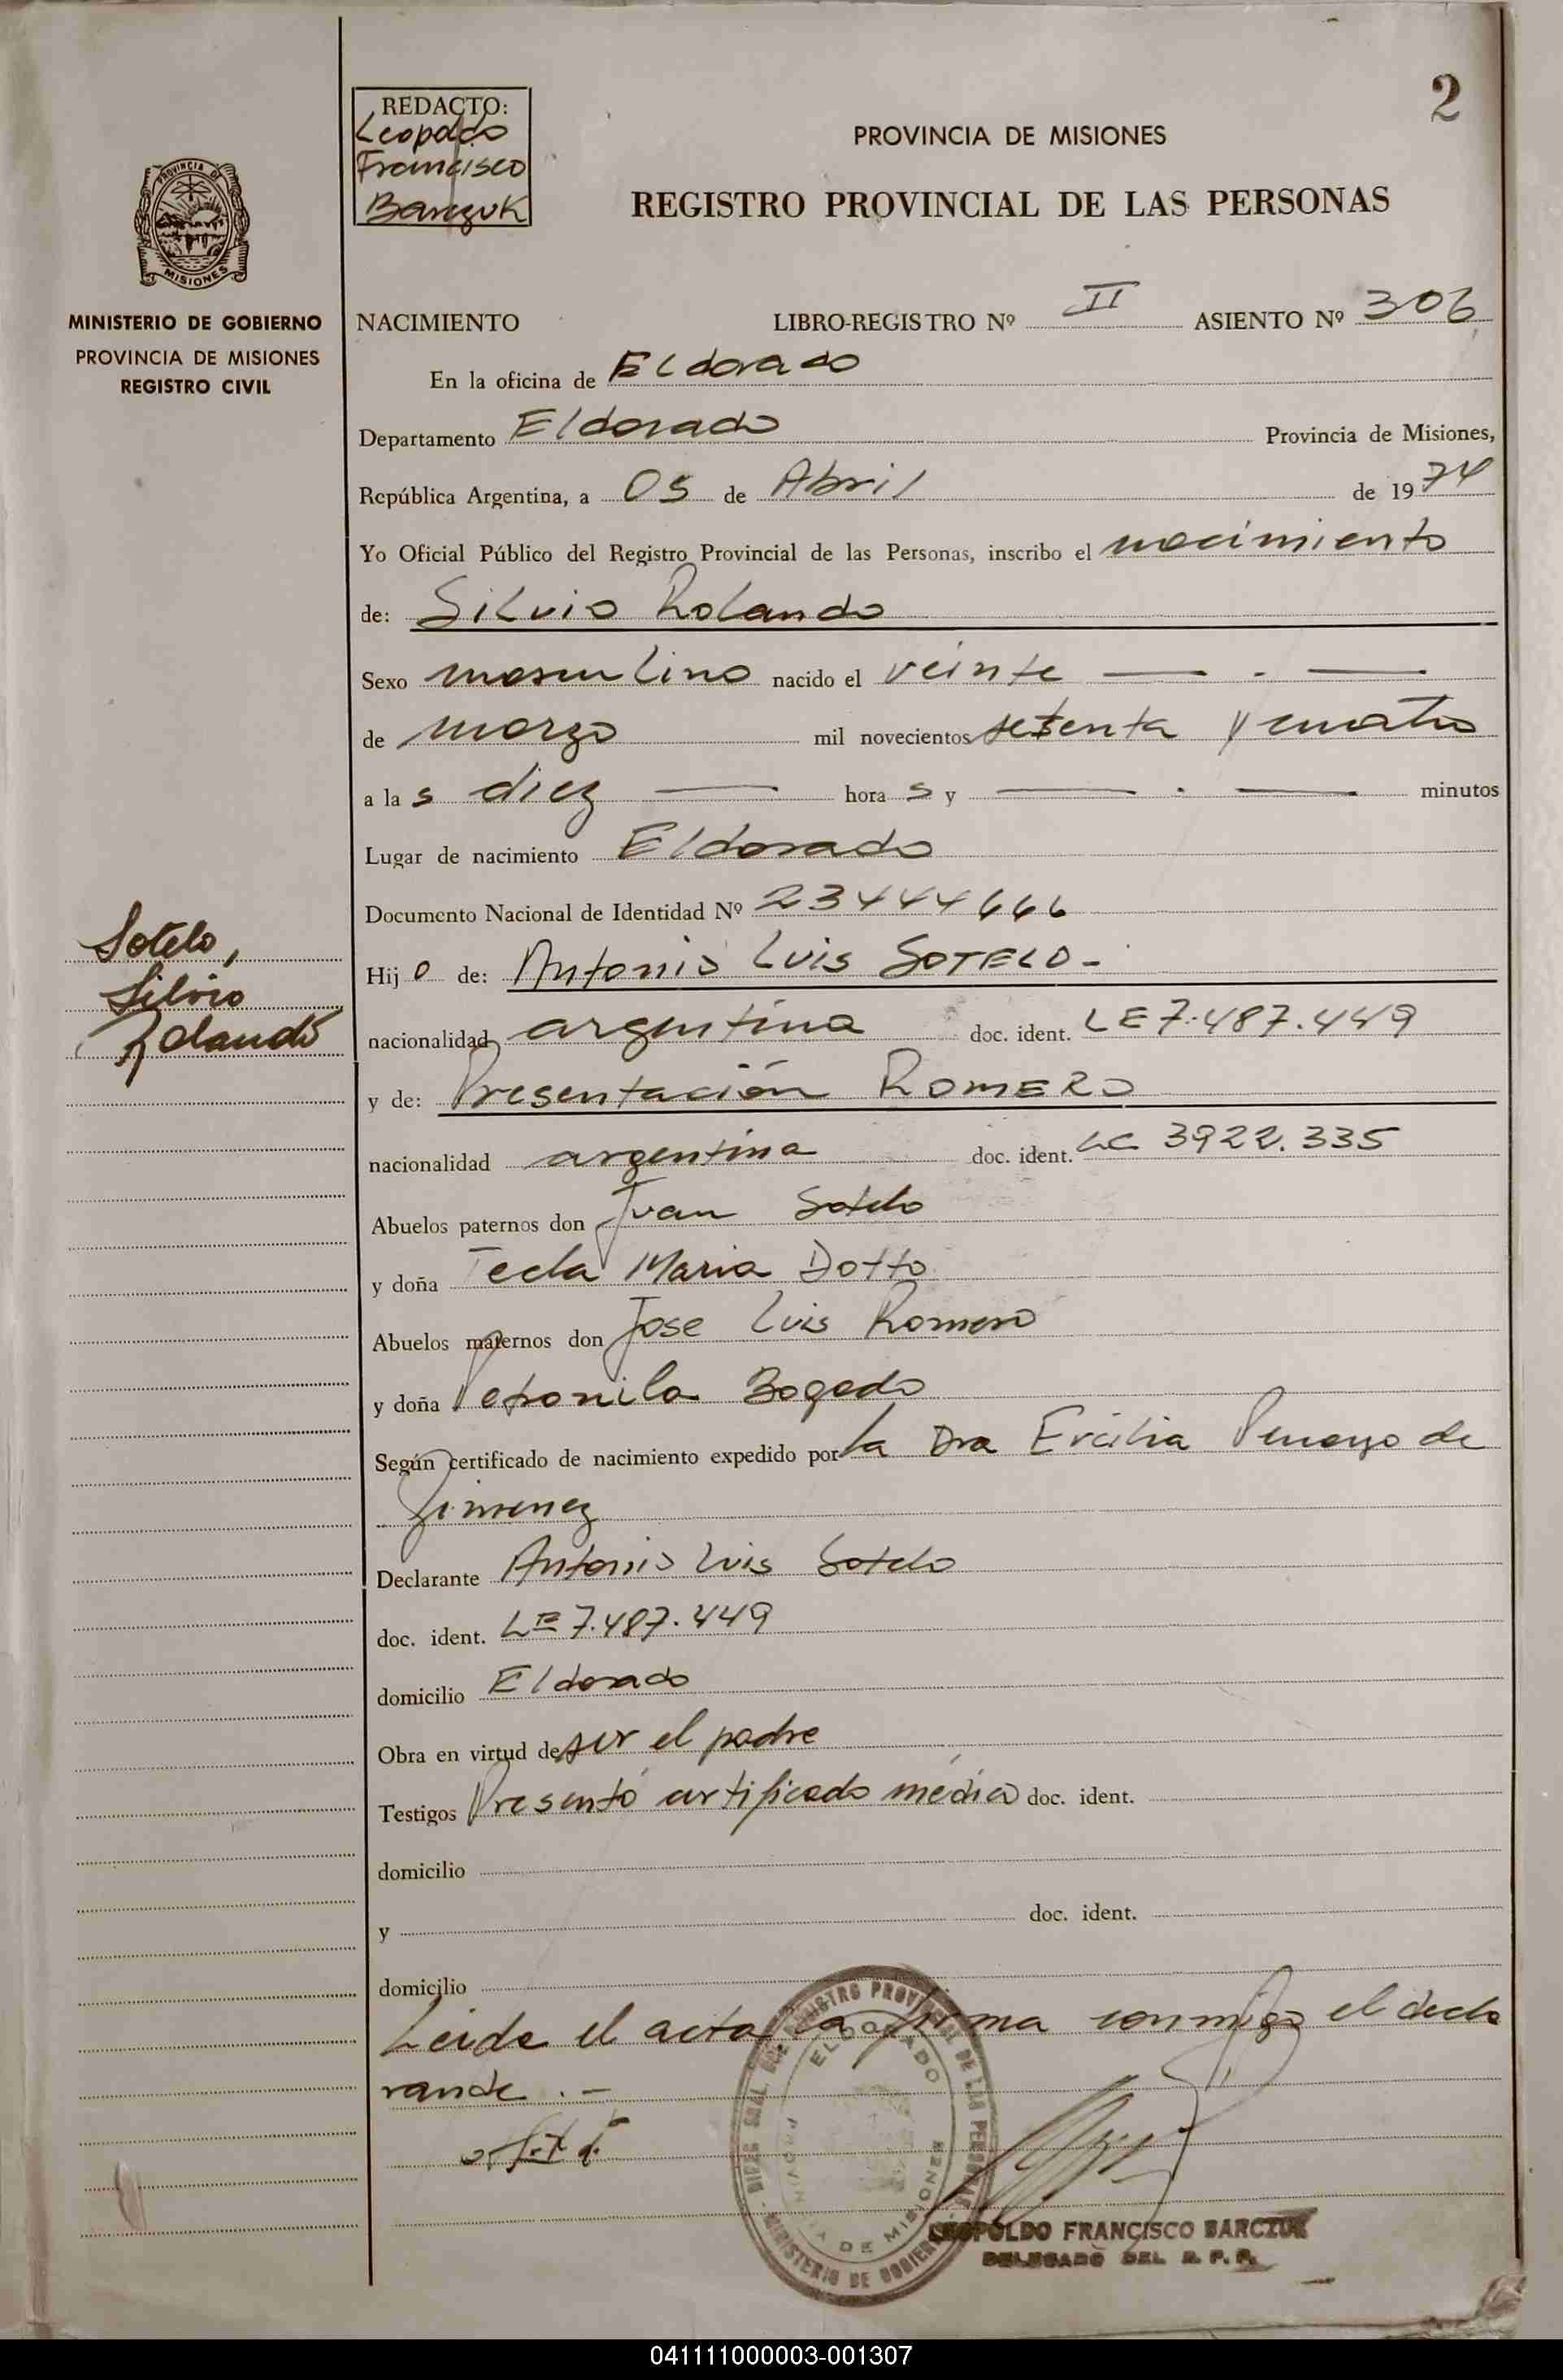 2
REDACTO:
Leopoldo
Francisco
Barczuk
PROVINCIA DE MISIONES
REGISTRO PROVINCIAL DE LAS PERSONAS
PROVINCIA DE
MISIONES
MINISTERIO DE GOBIERNO
PROVINCIA DE MISIONES
REGISTRO CIVIL
NACIMIENTO LIBRO-REGISTRO Nº II ASIENTO Nº 306
En la oficina de Eldorado
Departamento Eldorado Provincia de Misiones,
República Argentina, a 05 de Abril de 1974
Yo Oficial Público del Registro Provincial de las Personas, inscribo el nacimiento
de: Silvio Rolando
Sexo masculino nacido el veinte — . —
de marzo mil novecientos setenta y cuatro
a las diez — horas y — . — minutos
Lugar de nacimiento Eldorado
Documento Nacional de Identidad Nº 23444666
Sotelo,
Silvio
Rolando
Hijo de: Antonio Luis SOTELO-
nacionalidad argentina doc. ident. LE 7.487.449
y de: Presentación ROMERO
nacionalidad argentina doc. ident. LC 3922.335
Abuelos paternos don Juan Sotelo
y doña Tecla Maria Dotto
Abuelos maternos don Jose Luis Romero
y doña Petronila Bogado
Según certificado de nacimiento expedido por la Dra Ercilia Penayo de
Jimenez
Declarante Antonio Luis Sotelo
doc. ident. LE 7.487.449
domicilio Eldorado
Obra en virtud de ser el padre
Testigos Presentó certificado médico doc. ident.
domicilio
y doc. ident.
domicilio
Leida el acta la firma conmigo el decla
rante . –
ELDORADO
PROVINCIA DE MISIONES
MINISTERIO DE GOBIERNO
LEOPOLDO FRANCISCO BARCZUK
DELEGADO DEL R. P. P.
041111000003-001307